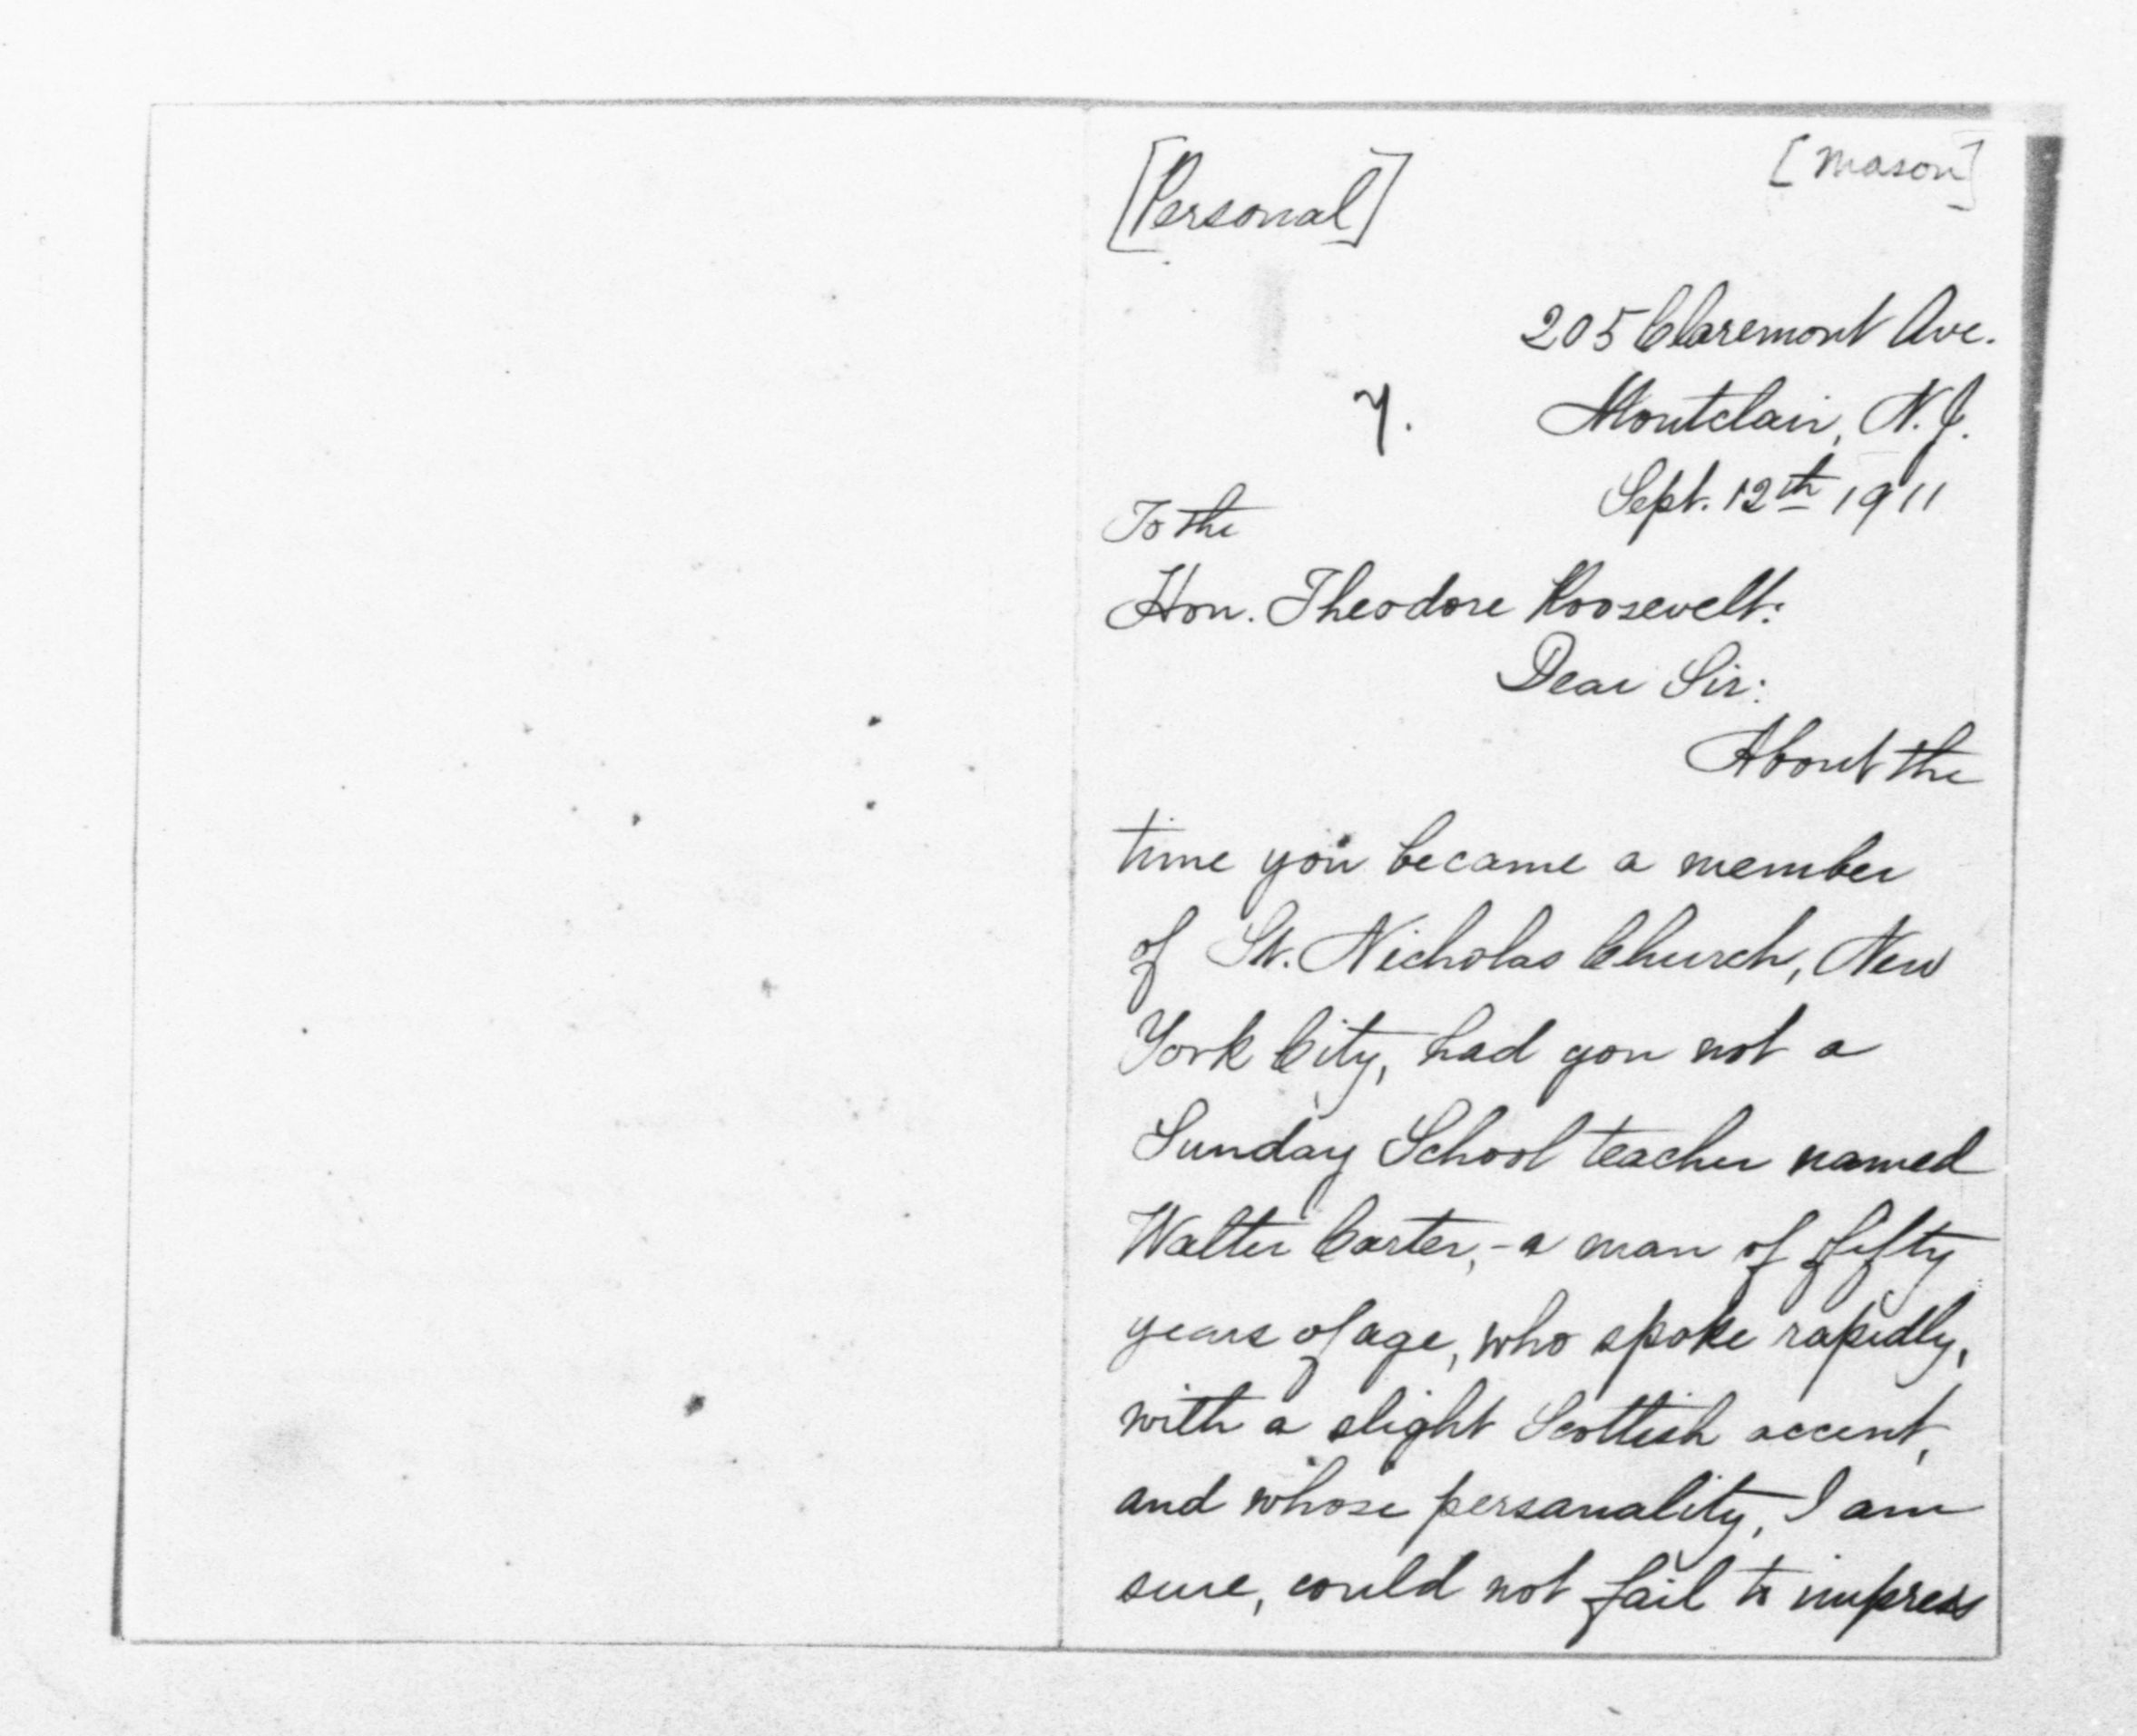 [Personal]
[Mason]
205 Claremont Ave.
Y.
Montclair, N.J.
Sept. 12th 1911
To the
Hon. Theodore Roosevelt:
Dear Sir:
About the
time you became a member
of St. Nicholas Church, New
York City, had you not a
Sunday School teacher named
Walter Carter, - a man of fifty
years of age, who spoke rapidly,
with a slight Scottish accent,
and whose personality, I am
sure, could not fail to impress